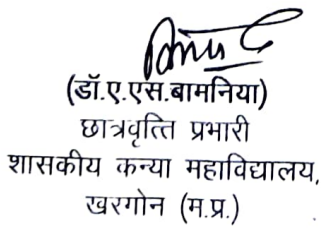 (डॉ.ए.एस.बामनिया)
छात्रवृत्ति प्रभारी
शासकीय कन्या महाविद्यालय,
खरगोन (म.प्र.)